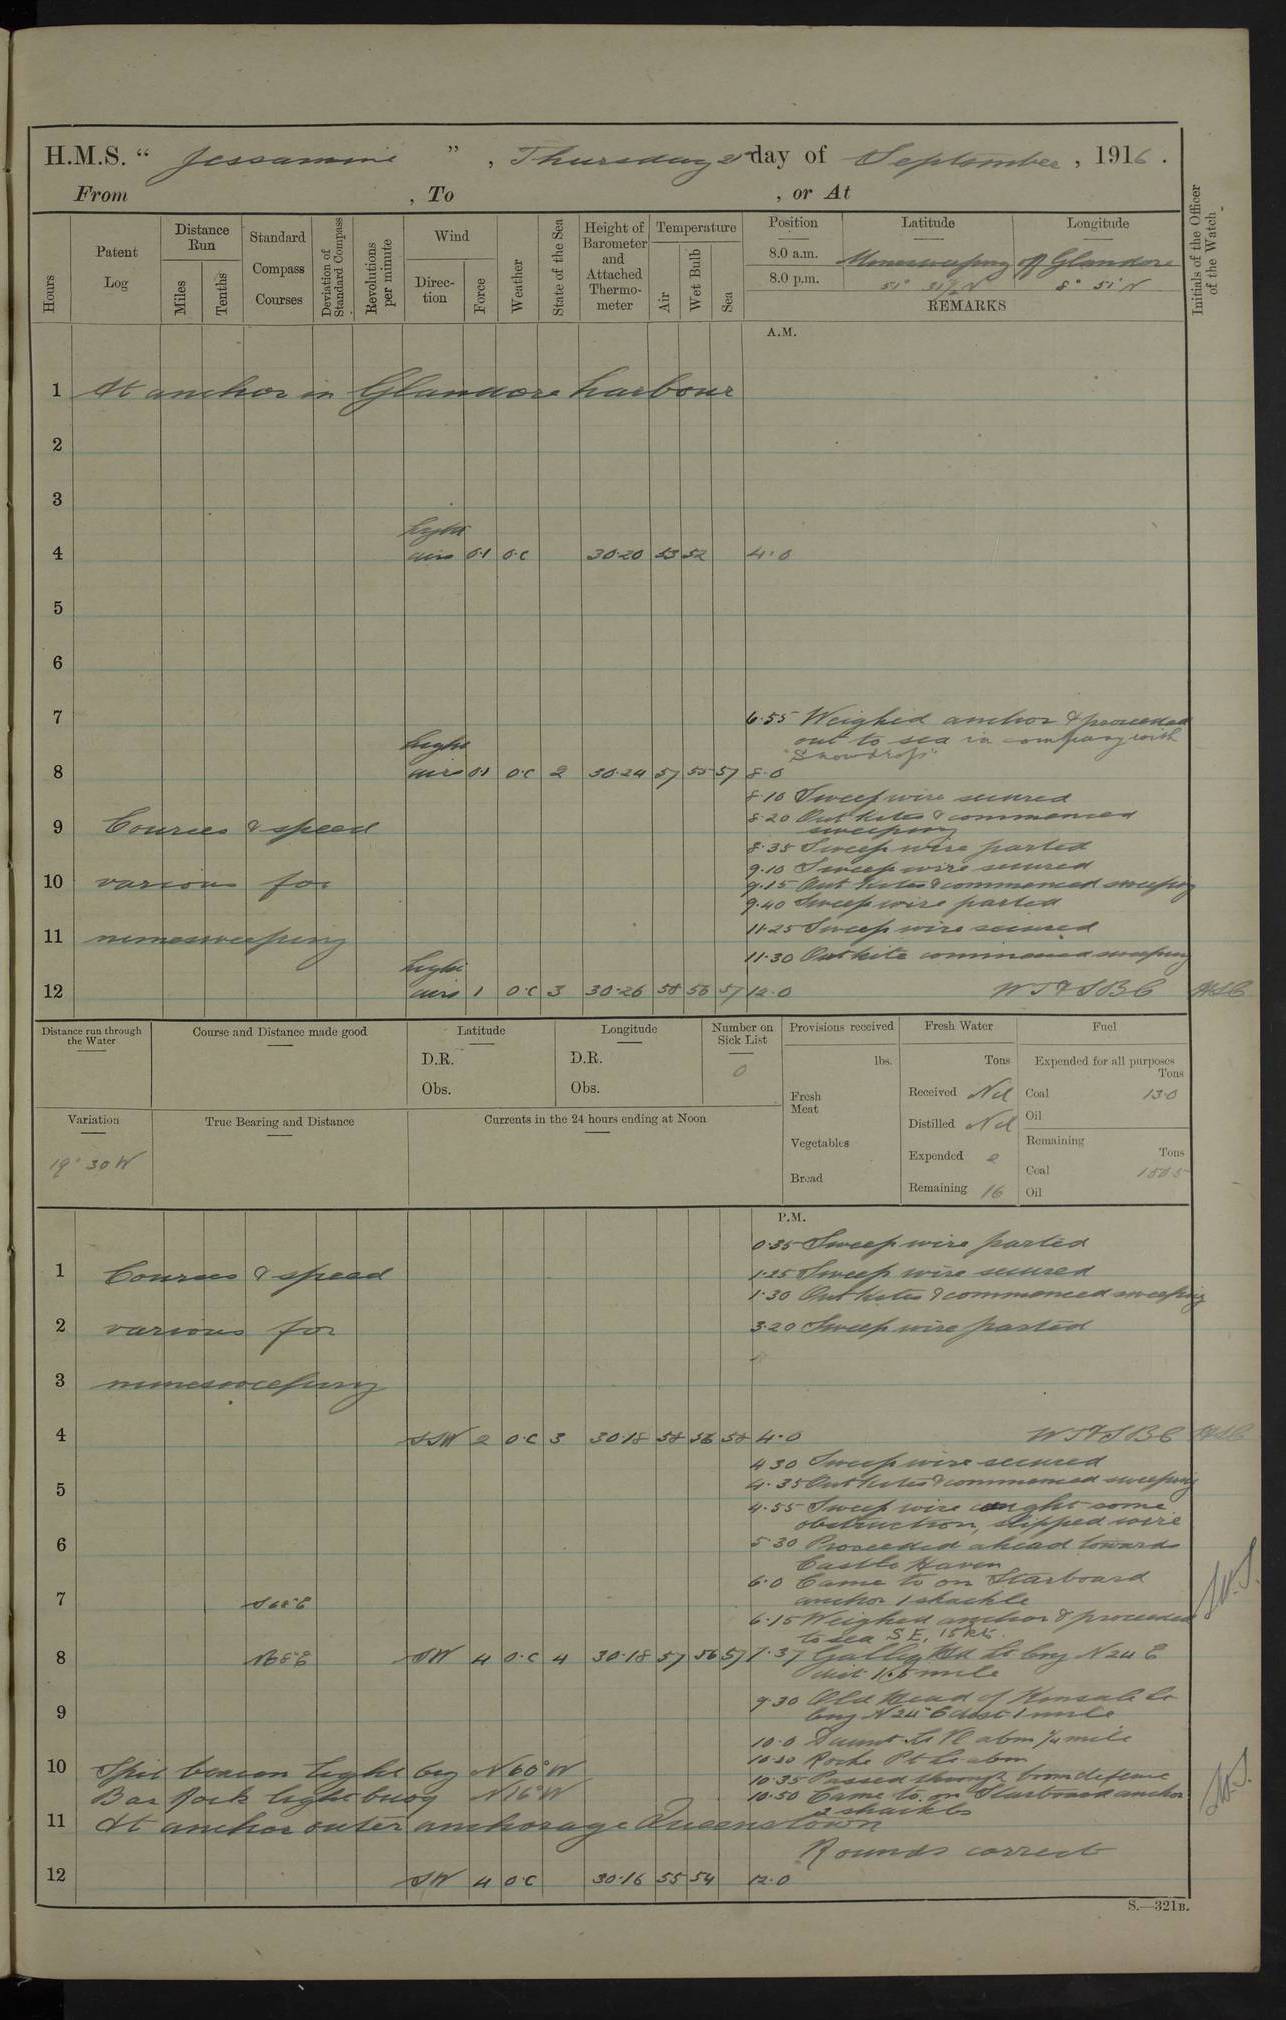 H.M.S. " Jessamine " , Thursday 21st day of September , 1916 .
From , To , or At
Hours
Patent Log
Distance Run
Miles
Tenths
Standard Compass Courses
Deviation of Standard Compass
Revolutions per minute
Wind
Direction
Force
Weather
State of the Sea
Height of Barometer and Attached Thermometer
Temperature
Air
Wet Bulb
Sea
Position Latitude Longitude
8.0 a.m. Minesweeping off Glandore
8.0 p.m. 51° 31½ N 8° 51' N
REMARKS
Initials of the Officer of the Watch.
A.M.
1 At anchor in Glandore harbour
2
3
light
4 airs 0.1 o.c 30.20 53 52 4.0
5
6
7 6.55 Weighed anchor & proceeded
out to sea in company with
light "Snowdrop"
8 airs 0.1 o.c 2 30.24 57 55 57 8.0
8.10 Sweep wire secured
9 Courses & speed 8.20 Out kites & commenced
sweeping
8.35 Sweep wire parted
9.10 Sweep wire secured
10 various for 9.15 Out kites & commenced sweeping
9.40 Sweep wire parted
11 minesweeping 11.25 Sweep wire secured
light 11.30 Out kite commenced sweeping
12 airs 1 o.c 3 30.26 58 56 57 12.0
Distance run through the Water
Course and Distance made good
Latitude
D.R.
Obs.
Longitude
D.R.
Obs.
Number on Sick List
0
Provisions received
lbs.
Fresh Meat
Vegetables
Bread
Fresh Water
Tons
Received Nil
Distilled Nil
Expended 2
Remaining 16
Fuel
Expended for all purposes
Tons
Coal 13.0
Oil
Remaining
Tons
Coal
Oil
Variation
19° 30 W
True Bearing and Distance
Currents in the 24 hours ending at Noon
P.M.
0.35 Sweep wire parted
1 Courses & speed 1.25 Sweep wire secured
1.30 Out kites & commenced sweeping
2 various for 3.20 Sweep wire parted
3 minesweeping
4 SSW 2 o.c 3 30.18 58 56 58 4.0
4.30 Sweep wire secured
5 4.35 Out kites & commenced sweeping
4.55 Sweep wire caught some
obstruction, slipped wire
6 5.30 Proceeded ahead towards
Castle Haven
6.0 Came to on Starboard
7 S68°E anchor 1 shackle
6.15 Weighed anchor & proceeded
to sea S.E. 15 kts.
8 N68°E SW 4 o.c 4 30.18 57 56 57 7.37 Galley Hd Lt brg N24 E
dist 1.5 mile
9 9.30 Old Head of Kinsale Lt
brg N24°E dist 1 mile
10.0 Daunt Lt Vl abm ¼ mile
10 Spit beacon light brg N60°W 10.20 Roche Pt Lt abm
10.35 Passed through boom defence
Bar Rock light buoy N16°W 10.50 Came to on Starboard anchor
2 shackles
11 At anchor outer anchorage Queenstown
Rounds correct
12 SW 4 o.c 30.16 55 54 12.0
S.—321B.